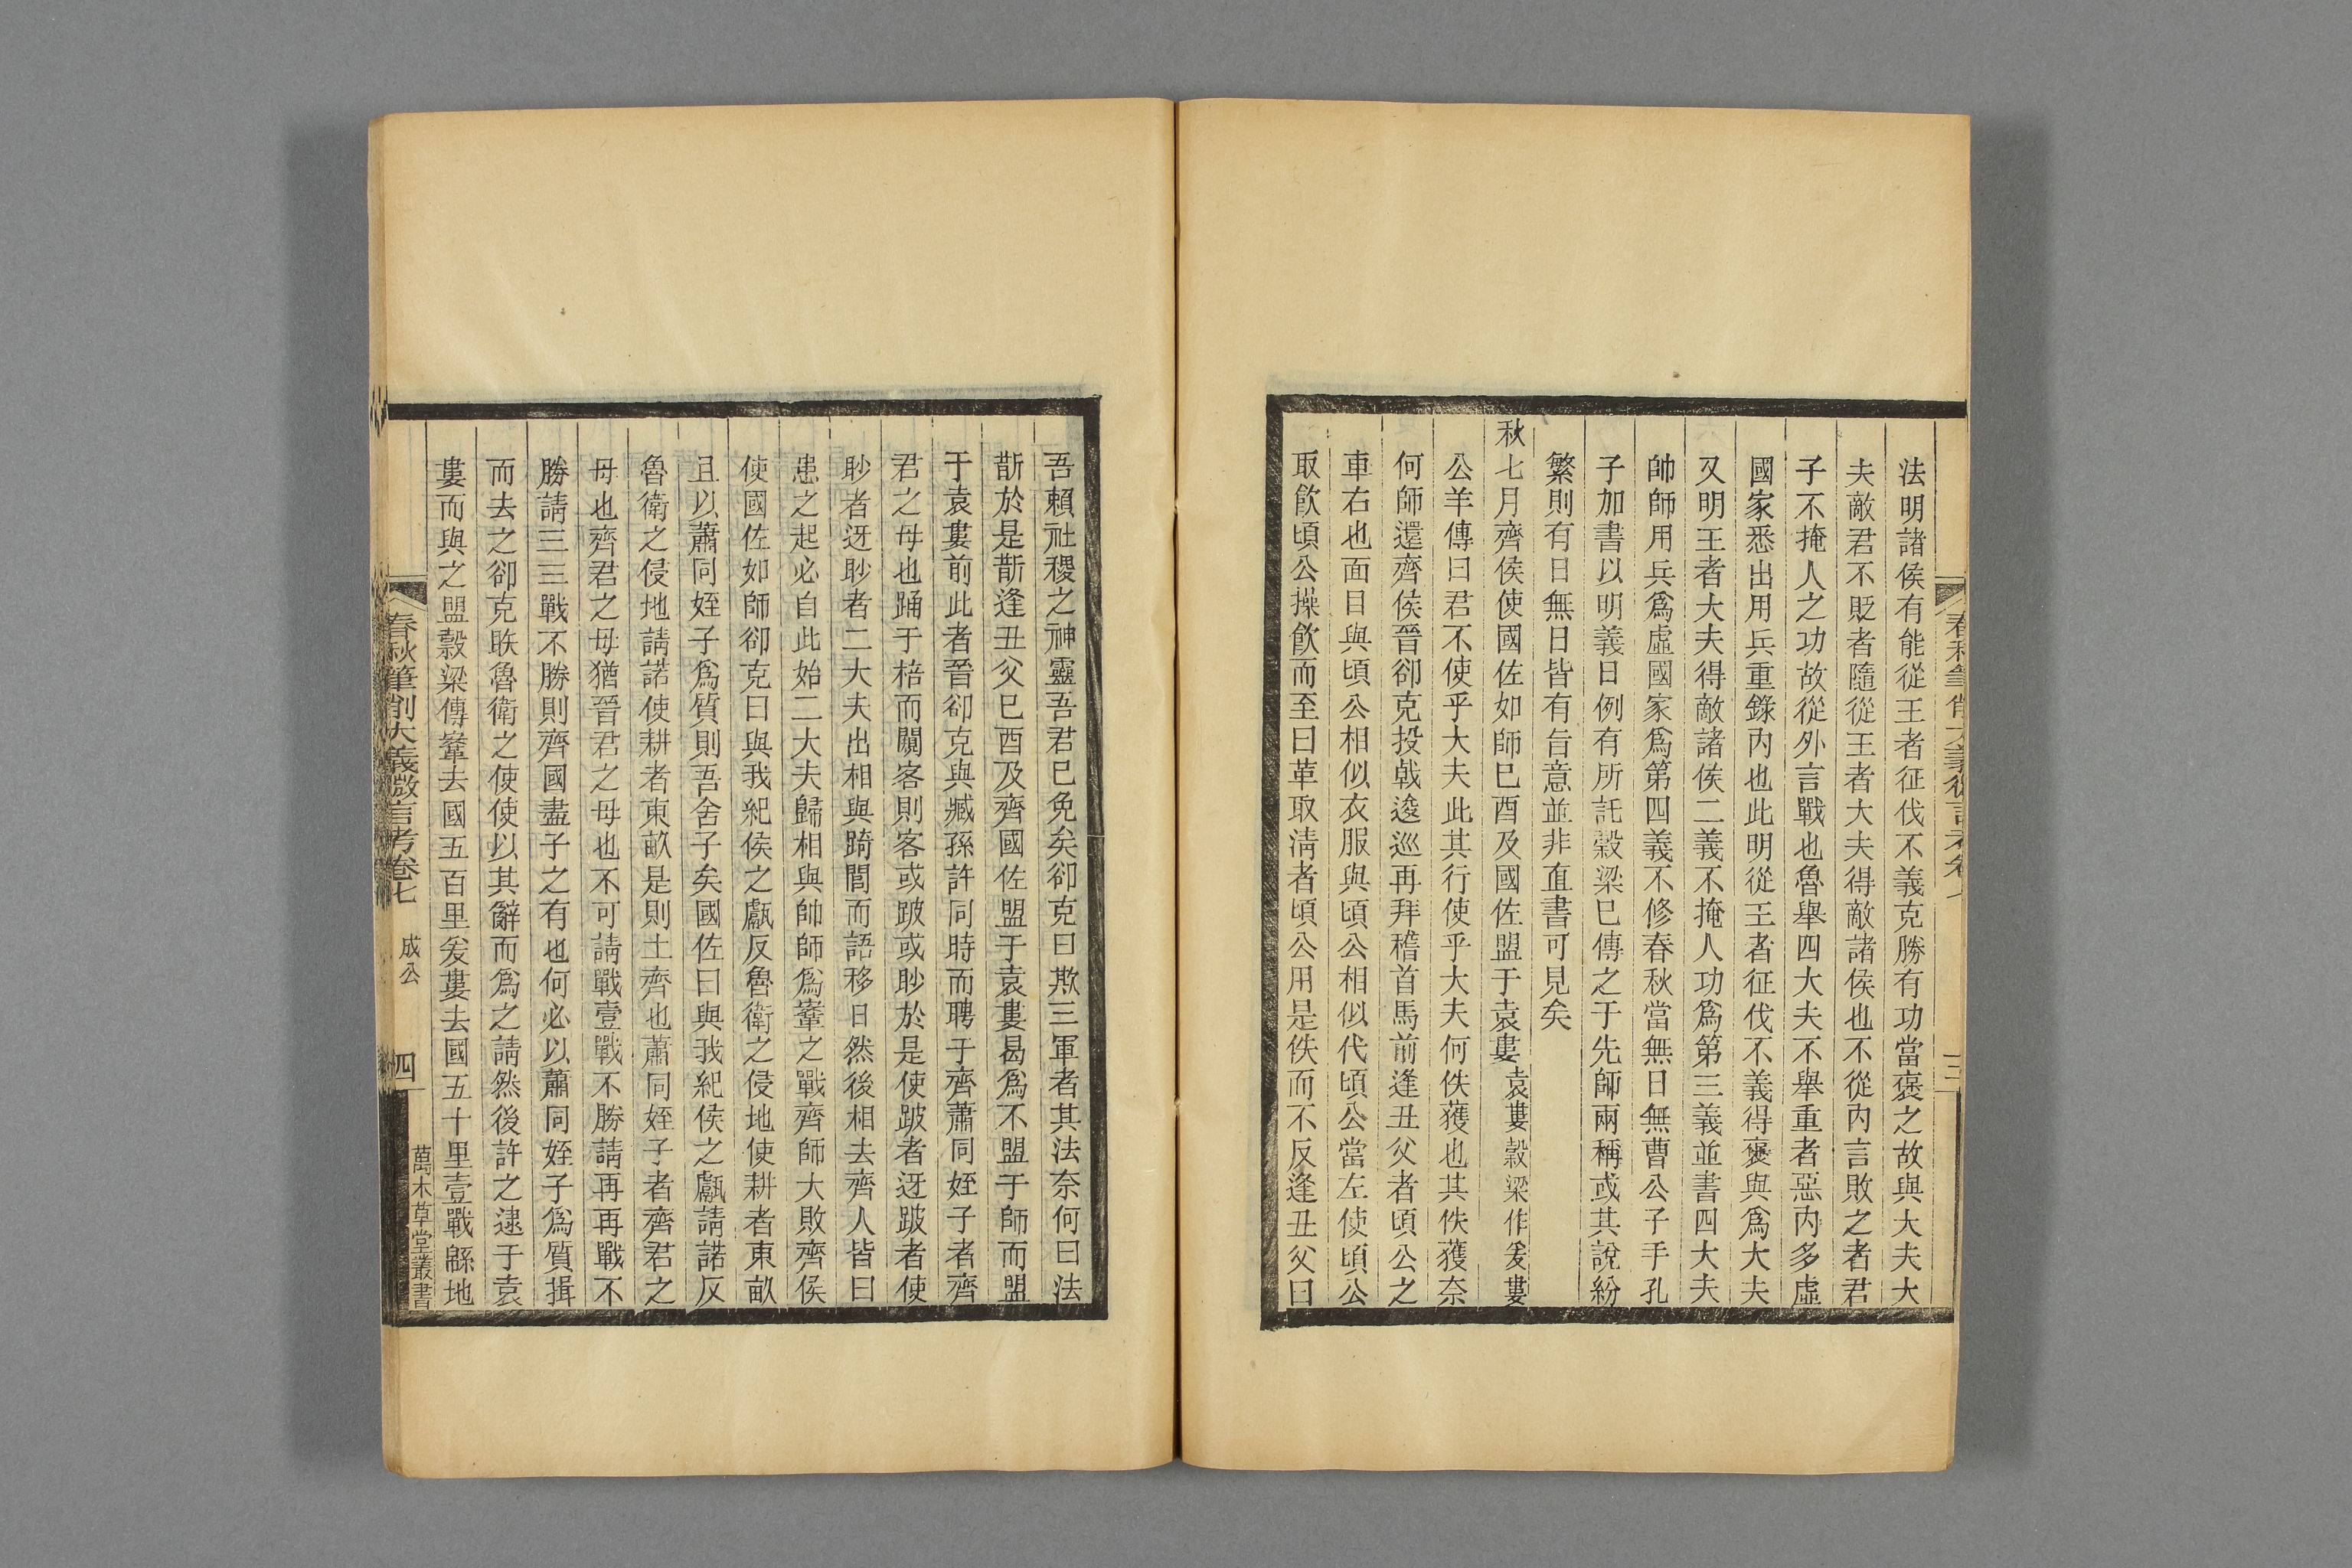 法明諸侯有能從王者征伐不義克勝有功當褒之故與大夫大
夫敵君不貶者隨從王者大夫得敵諸侯也不從內言敗之者君
子不掩人之功故從外言戰也魯舉四大夫不舉重者惡內多虛
國家悉出用兵重錄內也此明從王者征伐不義得褒與爲大夫
又明王者大夫得敵諸侯二義不掩人功爲第三義並書四大夫
帥師用兵爲虛國家爲第四義不修春秋當無日無曹公子手孔
子加書以明義日例有所託穀梁已傳之于先師兩稱或其說紛
繁則有日無日皆有旨意並非直書可見矣
秋七月齊侯使國佐如師已酉及國佐盟于袁婁袁婁穀梁作爰婁
公羊傳曰君不使乎大夫此其行使乎大夫何佚獲也其佚獲奈
何師還齊侯晉卻克投戟逡巡再拜稽首馬前逢丑父者頃公之
車右也面目與頃公相似衣服與頃公相似代頃公當左使頃公
取飲頃公操飲而至曰革取清者頃公用是佚而不反逢丑父曰
吾賴社稷之神靈吾君已免矣卻克曰欺三軍者其法奈何曰法
斮於是斮逢丑父已酉及齊國佐盟于袁婁曷爲不盟于師而盟
于袁婁前此者晉卻克與臧孫許同時而聘于齊蕭同姪子者齊
君之母也踊于棓而闚客則客或跛或眇於是使跛者迓跛者使
眇者迓眇者二大夫出相與踦閭而語移日然後相去齊人皆曰
患之起必自此始二大夫歸相與帥師爲鞌之戰齊師大敗齊侯
使國佐如師卻克曰與我紀侯之甗反魯衛之侵地使耕者東畝
且以蕭同姪子爲質則吾舍子矣國佐曰與我紀侯之甗請諾反
魯衛之侵地請諾使耕者東畝是則土齊也蕭同姪子者齊君之
母也齊君之母猶晉君之母也不可請戰壹戰不勝請再再戰不
勝請三三戰不勝則齊國盡子之有也何必以蕭同姪子爲質揖
而去之卻克眣魯衛之使使以其辭而爲之請然後許之逮于袁
婁而與之盟穀梁傳鞌去國五百里爰婁去國五十里壹戰緜地
春秋筆削大義微言考卷七 成公 四
萬木草堂叢書